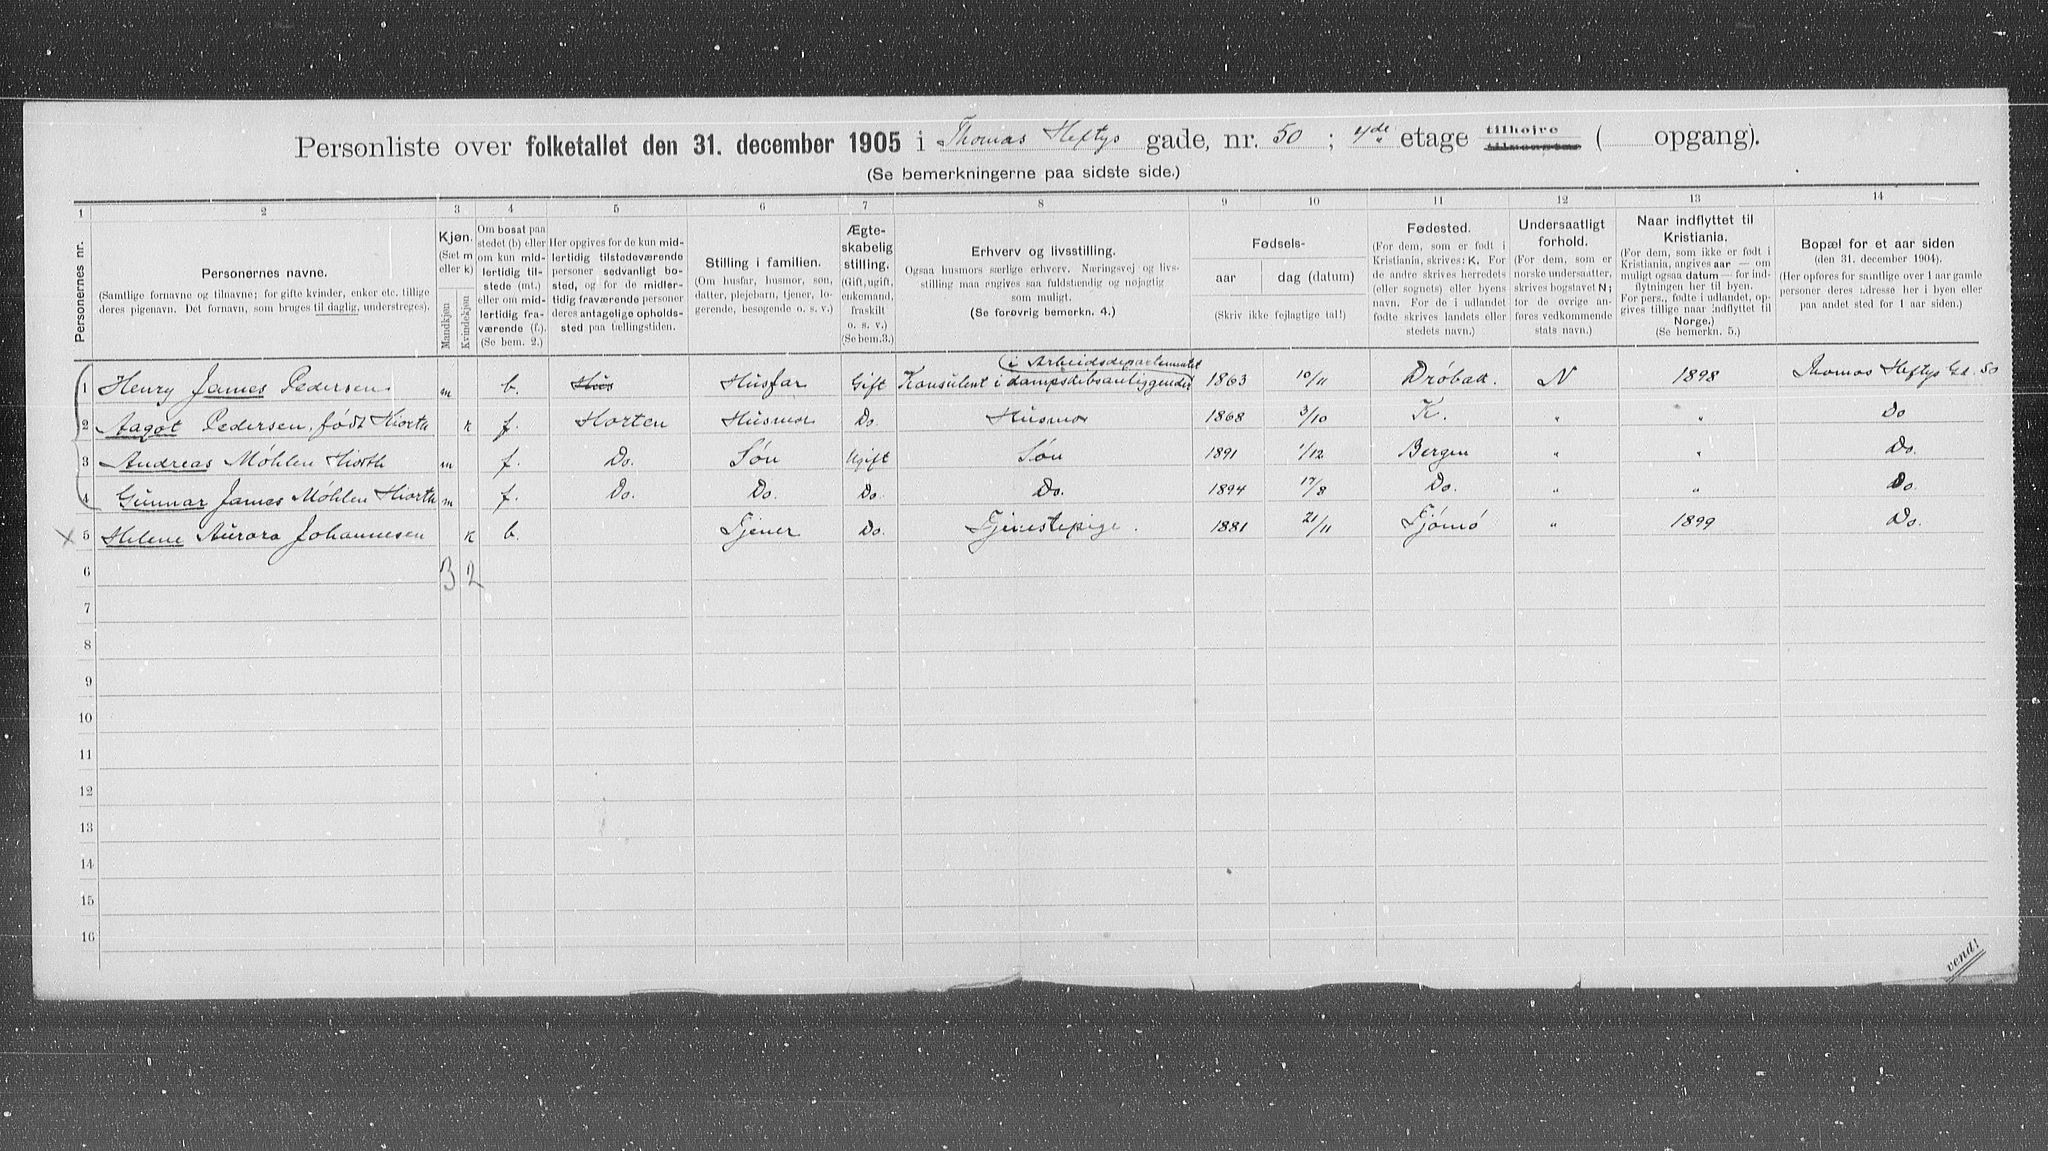 Personliste over folketallet den 31. december 1905 i Thomas Heftys gade, nr. 50 ; 4de etage tilhøjre tilvenstre ( opgang).
(Se bemerkningerne paa sidste side.)
1 2 3 4 5 6 7 8 9 10 11 12 13 14
Personernes nr.
Personernes navne.
(Samtlige fornavne og tilnavne; for gifte kvinder, enker etc. tillige
deres pigenavn. Det fornavn, som bruges til daglig, understreges).
Kjøn.
(Sæt m
eller k)
Mandkjøn
Kvindekjøn
Om bosat paa
stedet (b) eller
om kun mid-
lertidig til-
stede (mt.)
eller om mid-
lertidig fra-
værende (f.).
(Se bem. 2.)
Her opgives for de kun mid-
lertidig tilstedeværende
personer sedvanligt bo-
sted, og for de midler-
tidig fraværende personer
deres antagelige opholds-
sted paa tællingstiden.
Stilling i familien.
(Om husfar, husmor, søn,
datter, plejebarn, tjener, lo-
gerende, besøgende o. s. v.)
Ægte-
skabelig
stilling.
(Gift, ugift,
enkemand,
fraskilt
o. s. v.)
(Se bem. 3.)
Erhverv og livsstilling.
Ogsaa husmors særlige erhverv. Næringsvej og livs-
stilling maa angives saa fuldstændig og nøjagtig
som muligt.
(Se forøvrig bemerkn. 4.)
Fødsels-
aar
dag (datum)
(Skriv ikke fejlagtige tal!)
Fødested.
(For dem, som er født i
Kristiania, skrives: K. For
de andre skrives herredets
(eller sognets) eller byens
navn. For de i udlandet
fødte skrives landets eller
stedets navn.)
Undersaatligt
forhold.
(For dem, som er
norske undersaatter,
skrives bogstavet N;
for de øvrige an-
føres vedkommende
stats navn.)
Naar indflyttet til
Kristiania.
(For dem, som ikke er født i
Kristiania, angives aar — om
muligt ogsaa datum — for ind-
flytningen her til byen.
For pers., fødte i udlandet, op-
gives tillige naar indflyttet til
Norge.)
(Se bemerkn. 5.)
Bopæl for et aar siden
(den 31. december 1904).
(Her opføres for samtlige over 1 aar gamle
personer deres adresse her i byen eller
paa andet sted for 1 aar siden.)
i Arbeidsdepartementet
1 Henry James Pedersen m b. Hus Husfar Gift Konsulent i dampskibsanliggender 1863 10/11 Drøbak. N 1898 Thomas Heftys Gd. 50
2 Aagot Pedersen, født Hiorth k f. Horten Husmor Do. Husmor 1868 3/10 K. " " Do
3 Andreas Møhlen Hiorth m f. Do. Søn Ugift Søn 1891 1/12 Bergen " " Do.
4 Gunnar James Møhlen Hiorth m f. Do. Do. Do. Do. 1894 17/8 Do. " " Do.
x 5 Helene Aurora Johannesen k b. Tjener Do. Tjenestepige. 1881 21/11 Tjømø " 1899 Do.
6 3 2
7
8
9
10
11
12
13
14
15
16
vend!